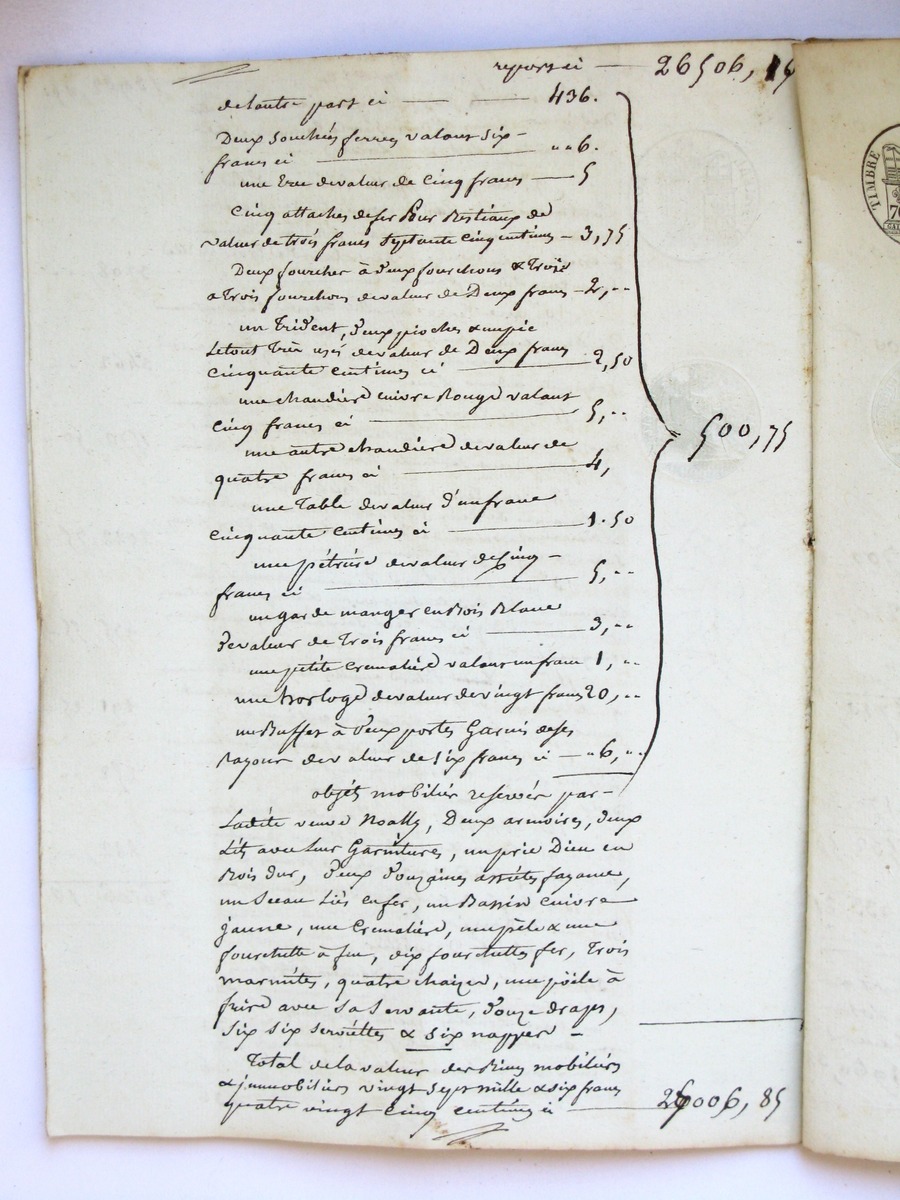 report ci — 26506, 14
de lautre part ci — — 436.
Deux souches ferrés valant six
francs ci — " " 6.
une Eree de valeur de cinq francs — 5
Cinq attaches de fer Pour Bestiaux de
valeur de trois francs septante cinq centimes — 3,75
Deux fourches à deux fourchons & Trois
a Trois fourchons de valeur de Deux francs — 2, "
un Trident, deux pioches & un pic
Le tout Très usés de valeur de Deux francs
cinquante centimes ci — 2,50
une chaudiere cuivre Rouge valant
Cinq francs ci — 5, "
une autre chaudiere de valeur de
quatre francs ci — 4,
une Table de valeur d'un franc
cinquante centimes ci — 1.50
une pétriere de valeur de Cinq —
francs ci — 5, "
un garde manger en Bois Blanc
de valeur de Trois francs ci — 3, "
une petite Cremaliere valant un franc 1, "
une horloge de valeur de vingt francs 20, "
un Buffet à deux portes Garnis de ses
Rayons de valeur de six francs ci — " 6, "
500,75
objets mobiliers reservés par —
Ladite veuve Noally, Deux armoires, deux
Lits avec leur Garnitures, un prie Dieu en
Bois dur, deux douzaines assiétes fayance,
un Seeau liés en fer, un Bassin cuivre
jaune, une Cremaliere, une péle & une
fourchette à feu, dix fourchettes fer, Trois
marmites, quatre chaizes, une poële à
frire avec sa servante, douze draps,
six six serviéttes & six nappes —
Total de la valeur des Biens mobiliers
& immobiliers vingt sept mille & six francs
quatre vingt cinq centimes ci — 27006, 85
TIMBRE